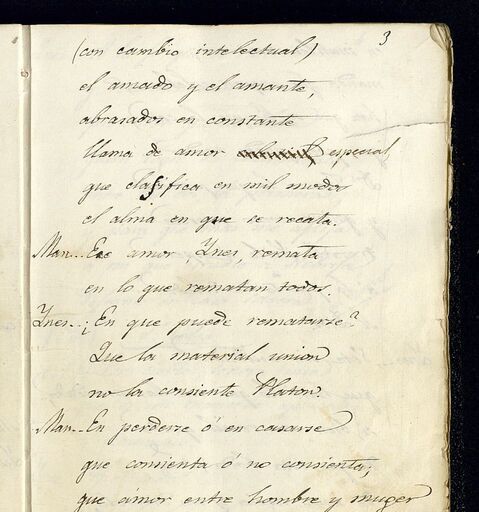 3
(con cambio intelectual)
el amado y el amante,
abrasados en constante
llama de amor especial,
que clasifica en mil modos
el alma en que se recata.
Man... Ese amor, Ynes, remata
en lo que rematan todos.
Ynes... ¿En que puede rematarse?
Que la material union
no la consiente Platon.
Man... En perderse ó en casarse
que consienta ó no consienta;
que ámor entre hombre y muger